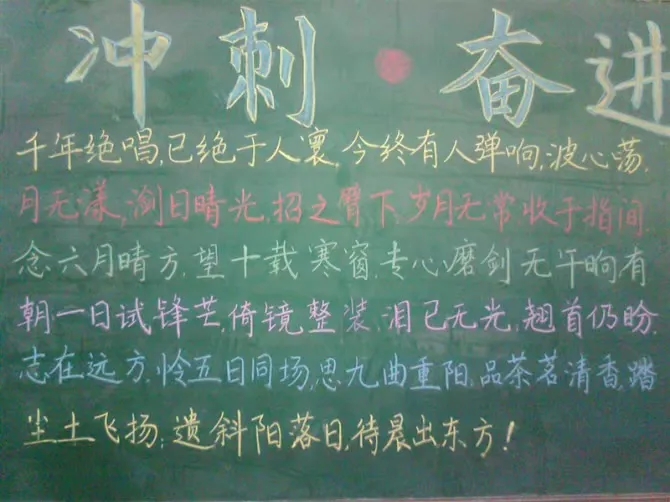 冲刺·奋进
千年绝唱,已绝于人寰,今终有人弹响,波心荡,
月无漾,浏日晴光,招之臂下,岁月无常收于指间
念六月晴方,望十载寒窗,专心磨剑无午晌有
朝一日试锋芒,倚镜整装,泪已无光,翘首仍盼,
志在远方,怜五日同场,思九曲重阳,品茶茗清香,踏
尘土飞扬;遗斜阳落日,待晨出东方!